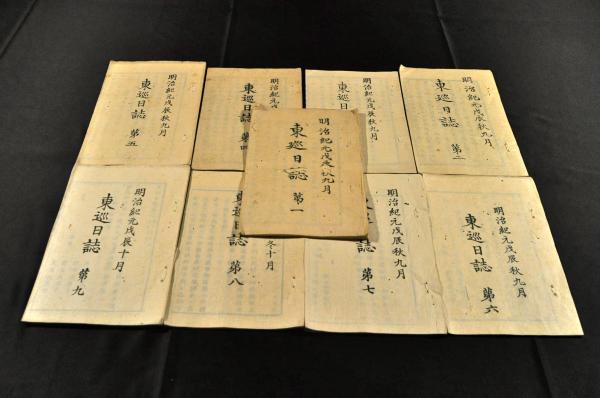 明治紀元戊辰秋九月
東巡日誌 第五
明治紀元戊
東巡日誌 第四
明治紀元戊辰秋九月
東巡日
明治紀元戊辰秋九月
東巡日誌 第二
明治紀元戊辰秋九月
東巡日誌 第一
明治紀元戊辰十月
東巡日誌 第九
冬十月
東巡日誌 第八
明治紀元戊辰秋九月
日誌 第七
明治紀元戊辰秋九月
東巡日誌 第六